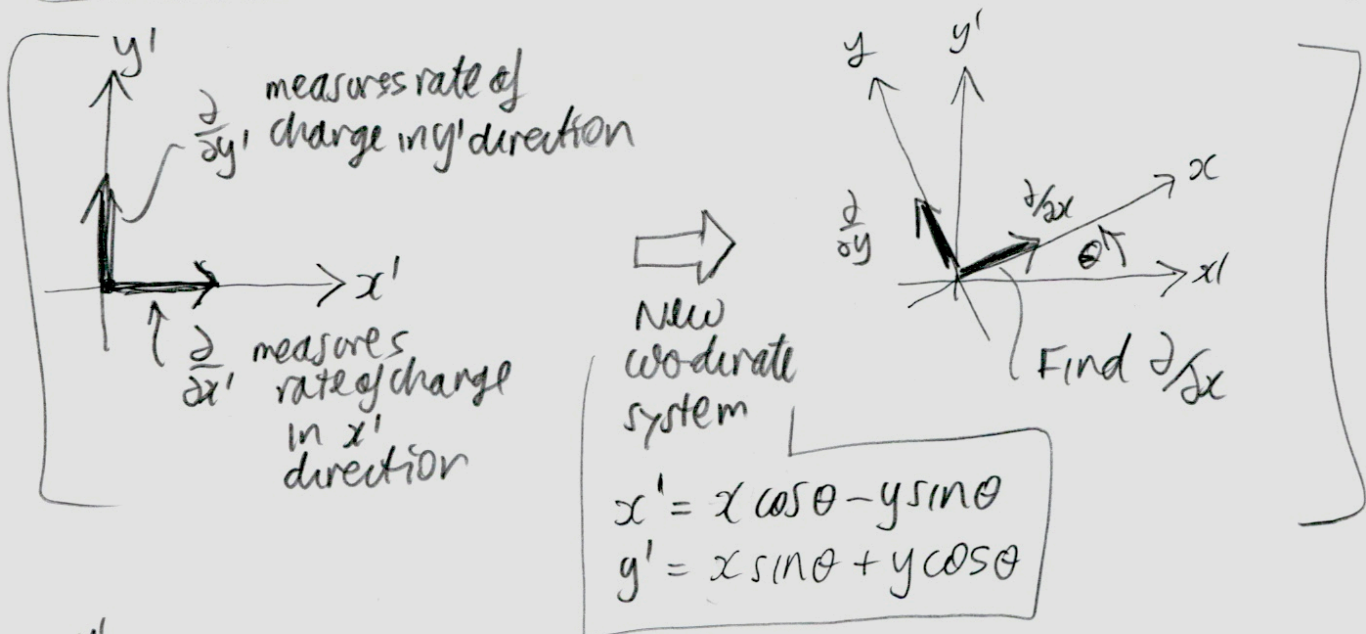 y'
∂/∂y' measures rate of
change in y' direction
x'
∂/∂x' measures
rate of change
in x'
direction
New
coordinate
system
y
y'
x
∂/∂x
∂/∂y
θ
x'
Find ∂/∂x
x' = x cosθ - y sinθ
y' = x sinθ + y cosθ
y'